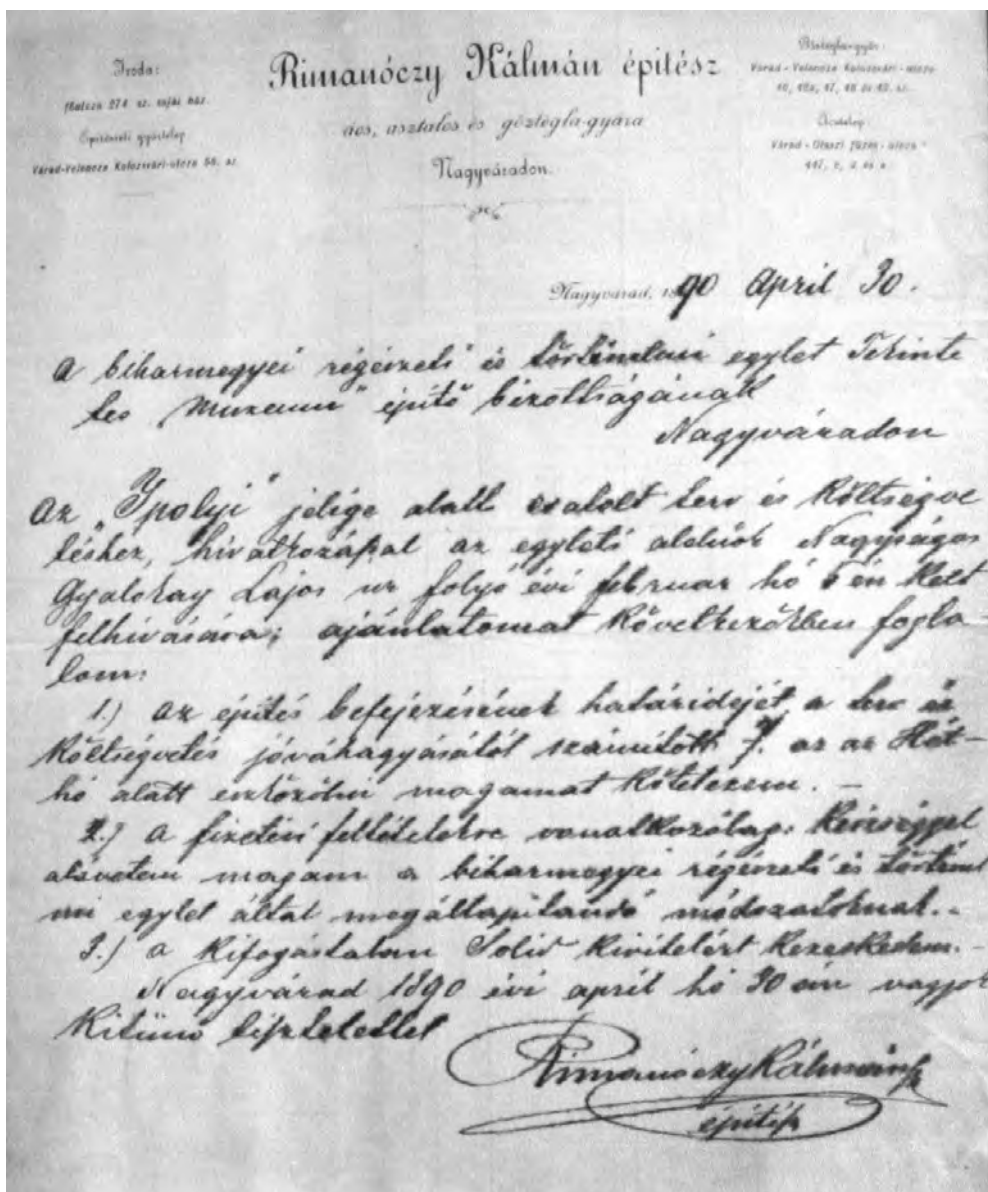 Iroda:
főutcza 274 sz. saját ház.
Építészeti gyártelep
Várad-Velencze Kolozsvári-utcza 56. sz.
Rimanóczy Kálmán építész
ács, asztalos és gőztégla-gyára
Nagyváradon.
Várad-Velencze Kolozsvári-utcza
Várad-Olaszi füzes-utcza
Nagyvárad, 1890 April 30.
A biharmegyei régészeti és történelmi egylet Tekinte
tes "Muzeum" építő bizottságának
Nagyváradon
Az "Ipolyi" jelige alatt csatolt terv és költségve
téshez, hivatkozással az egyleti alelnök Nagyságos
Gyalokay Lajos ur folyó évi február hó 5 én kelt
felhivására; ajánlatomat következőkben fogla-
lom:
1.) Az építés befejezésének határidejét a terv és
költségvetés jóváhagyásától számított 7. az az Hét-
hó alatt eszközölni magamat kötelezem. –
2.) A fizetési feltételekre vonatkozólag: készséggel
alávetem magam a biharmegyei régészeti és történel
mi egylet által megállapitandó módozatoknak. -
3.) A kifogástalan Solid kivitelért kezeskedem. -
Nagyvárad 1890 évi april hó 30 án vagyok
Kitünő tisztelettel
Rimanóczy Kálmán
építész